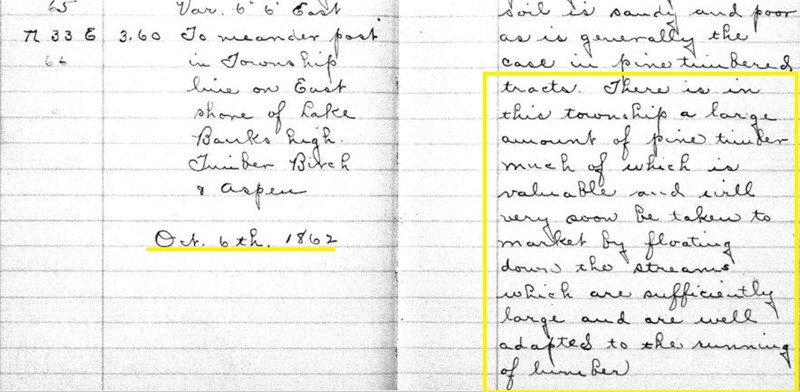 65
Var. 6° 6' East
N 33 E 3.60 To meander post
66 in Township
line on East
shore of Lake
Banks high.
Timber Birch
& Aspen
Oct. 6th. 1862
soil is sandy and poor
as is generally the
case in pine timbered
tracts. There is in
this township a large
amount of pine timber
much of which is
valuable and will
very soon be taken to
market by floating
down the streams
which are sufficiently
large and are well
adapted to the running
of lumber